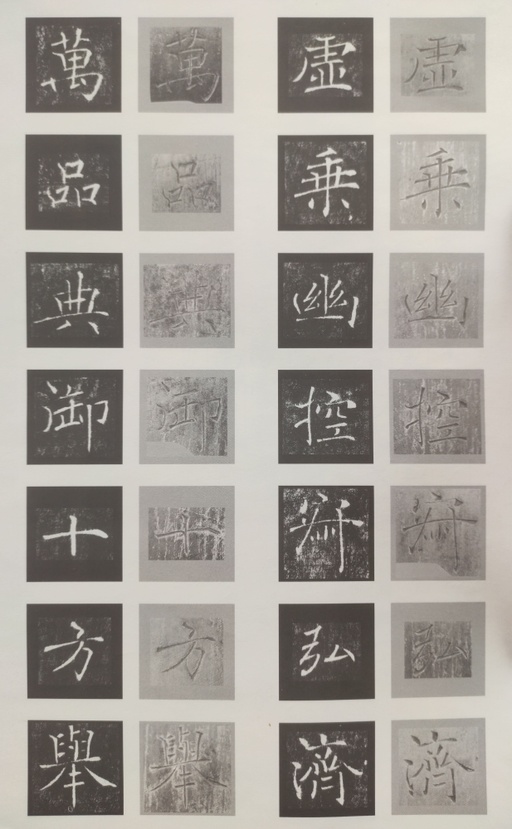 虚乗幽控寂弘濟
虚乗幽控寂弘濟
萬品典御十方舉
萬品典御十方舉